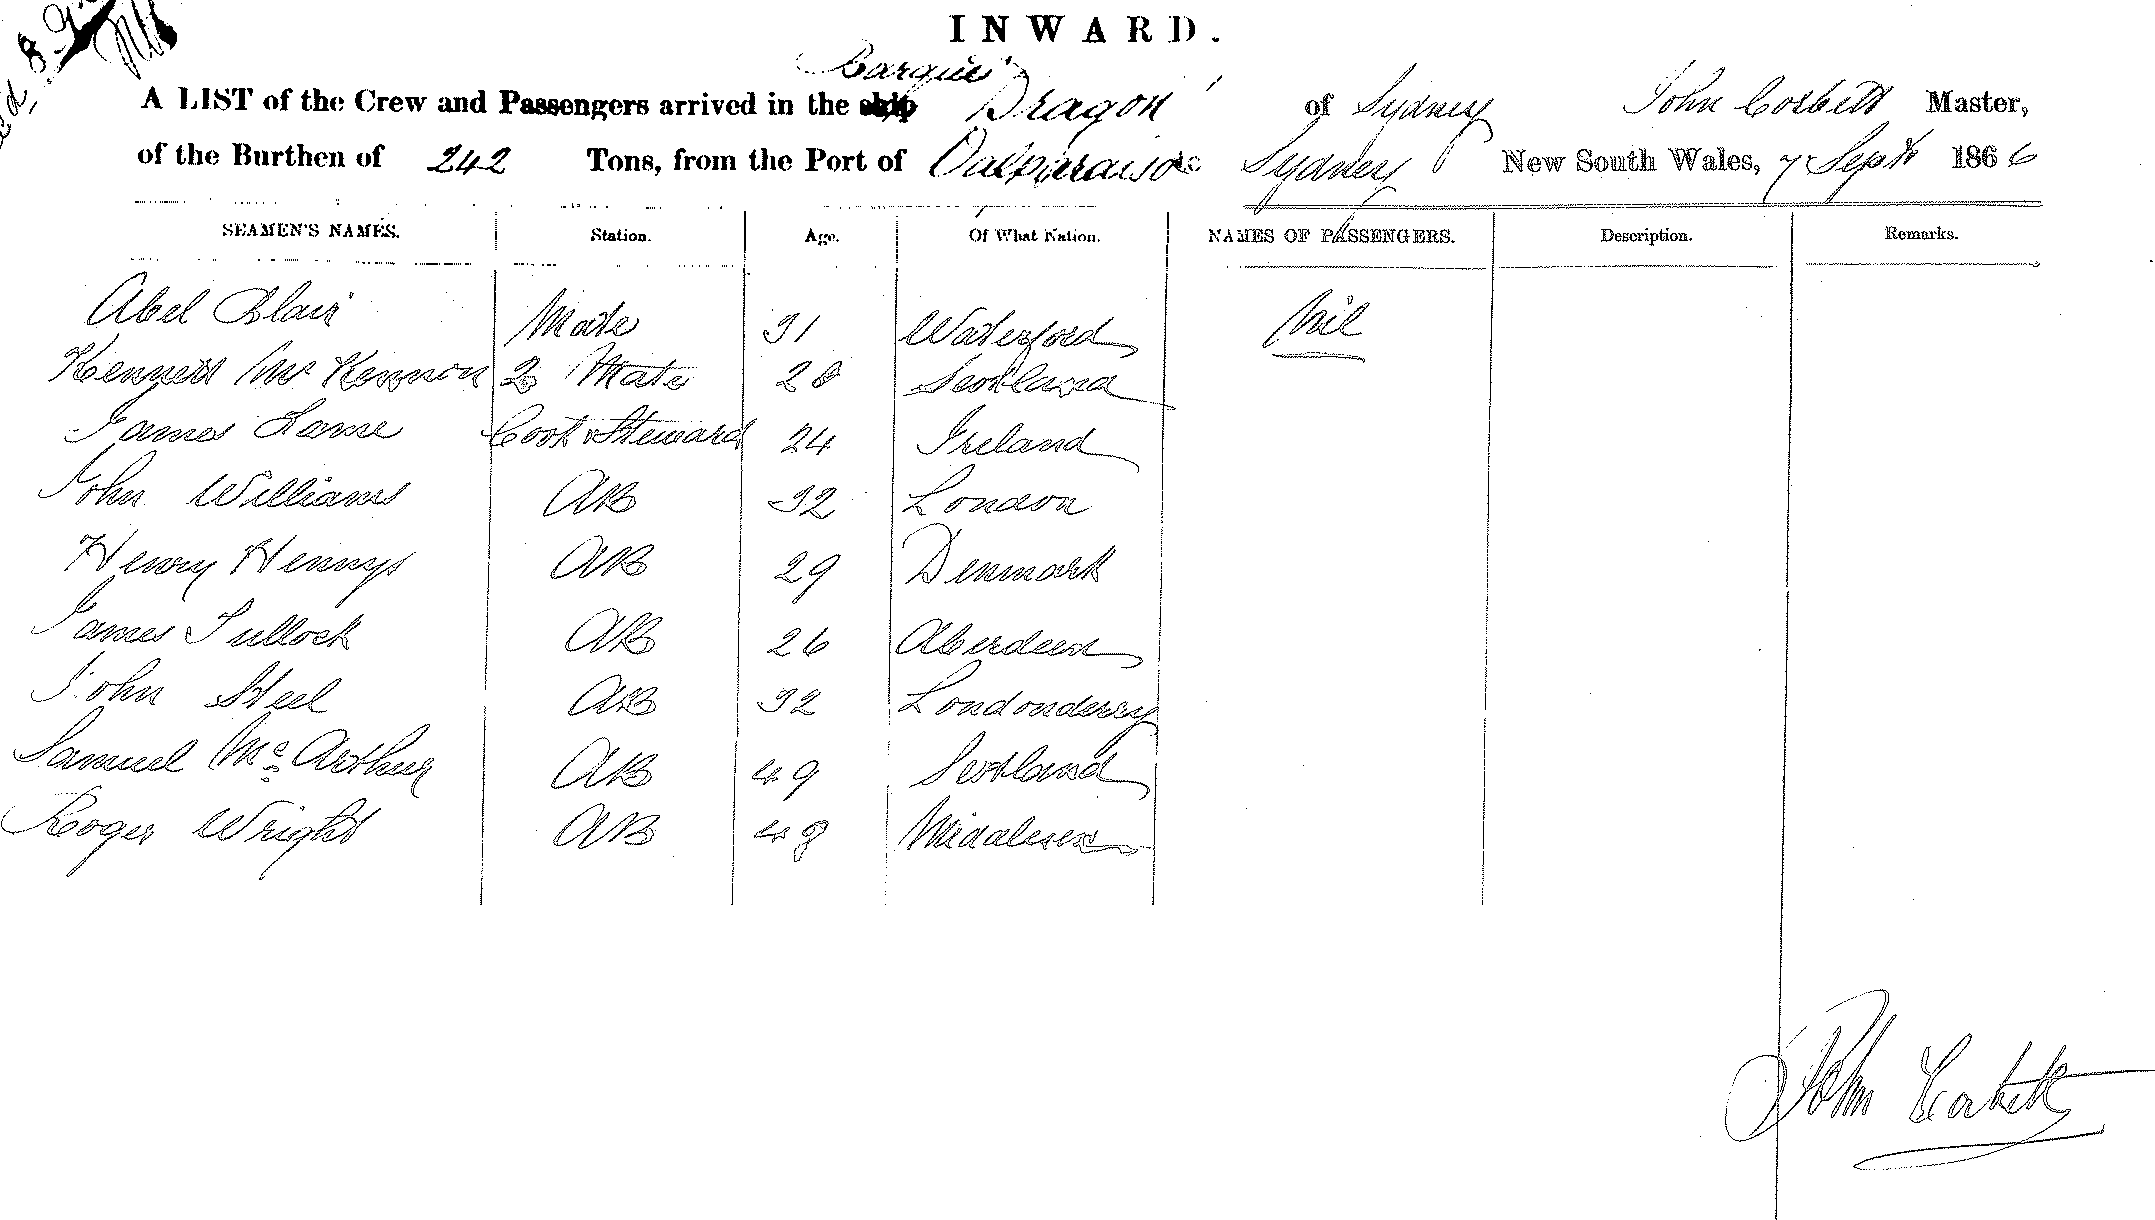 INWARD.
Barque
A LIST of the Crew and Passengers arrived in the ship Dragon of Sydney John Corbett Master,
of the Burthen of 242 Tons, from the Port of Valparaiso to Sydney New South Wales, 7 Sept 1866
SEAMEN'S NAMES. Station. Age. Of What Nation. NAMES OF PASSENGERS. Description. Remarks.
Abel Blair Mate 31 Waterford Nil
Kenneth McKennon 2 Mate 28 Scotland
James Lane Cook & Steward 24 Ireland
John Williams AB 32 London
Henry Hennys AB 29 Denmark
James Tullock AB 26 Aberdeen
John Steel AB 32 Londonderry
Samuel McArthur AB 49 Scotland
Roger Wright AB 48 Middlesex
John Corbett